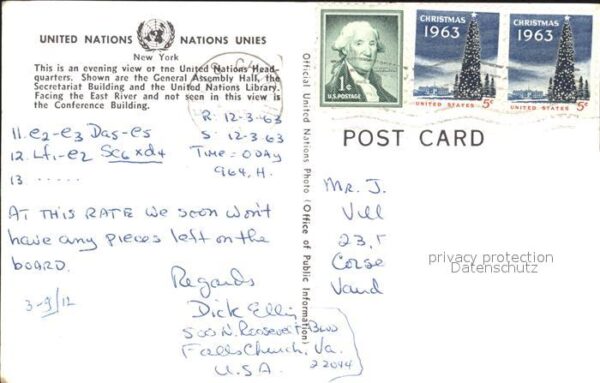 UNITED NATIONS NATIONS UNIES
New York
This is an evening view of the United Nations Head-
quarters. Shown are the General Assembly Hall, the
Secretariat Building and the United Nations Library.
Facing the East River and not seen in this view is
the Conference Building.
R: 12-3-63
S: 12-3.63
TIME: 0 DAY
964, H.
11. e2-e3 Da5-e5
12. Lf1-e2 Sc6xd4
13 .....
AT THIS RATE we soon won't
have any pieces left on the
BOARD.
Regards
Dick Ellis
500 N. Roosevelt Blvd
Falls Church, Va.
22044
U.S.A.
3-9/12
Official United Nations Photo (Office of Public Information)
1¢
U.S. POSTAGE
CHRISTMAS
1963
UNITED STATES 5¢
CHRISTMAS
1963
UNITED STATES 5¢
POST CARD
Mr. J.
Vill
23, r
Corse
Vaud
privacy protection
Datenschutz